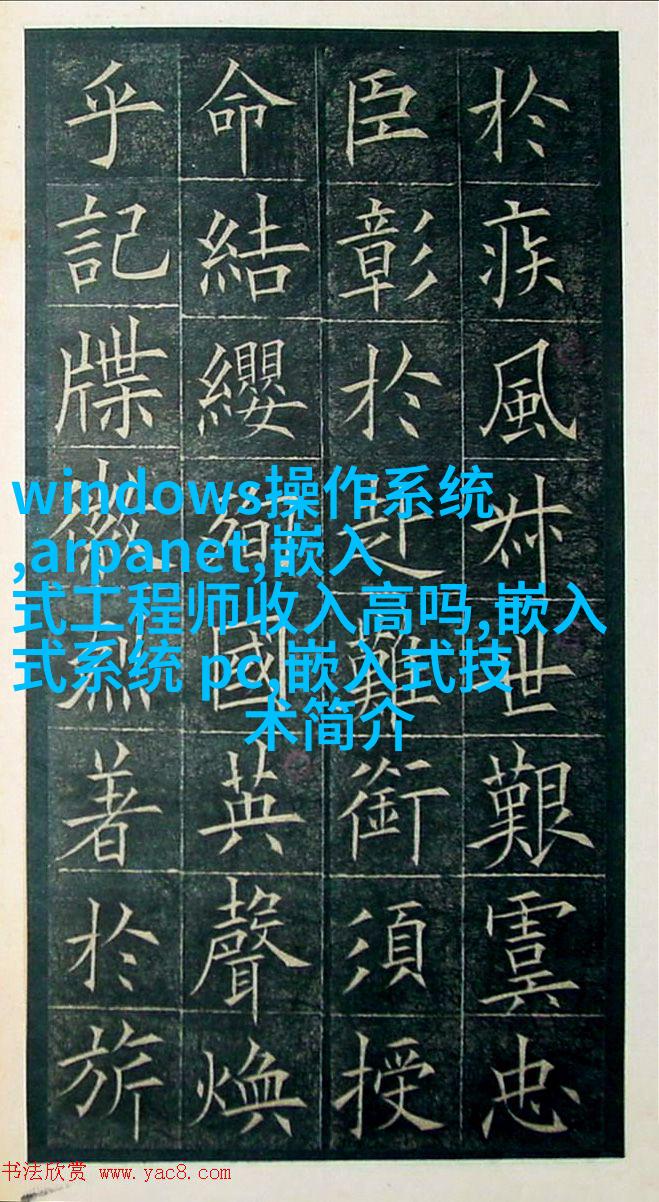 於疾風叔世艱虞忠
臣彰於赴難銜須授
命結纓殉國英聲煥
乎記牒徽烈著於旂
windows操作系统
,arpanet,嵌入
式工程师收入高吗,嵌入
式系统 pc,嵌入式技
术简介
书法欣赏 www.yac8.com